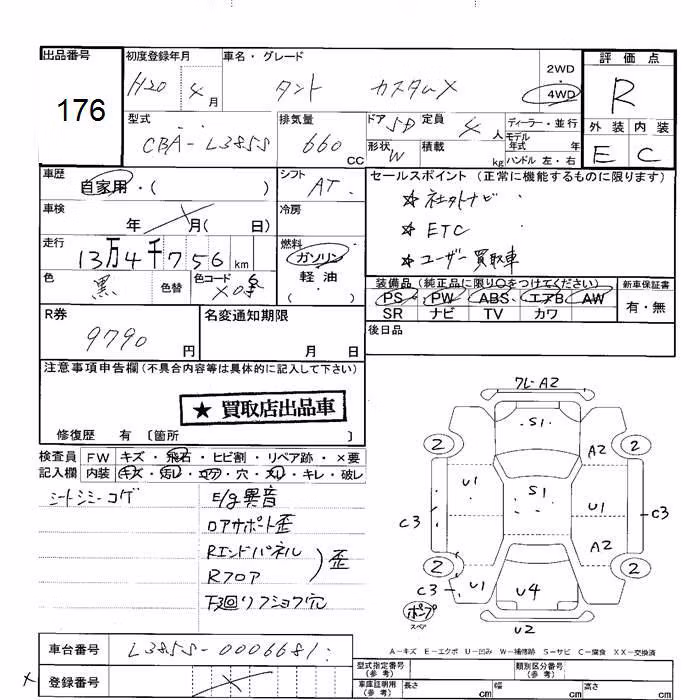 出品番号 初度登録年月 車名・グレード 評価点
176 H20 4月 タント カスタムX 2WD 4WD R
型式 排気量 ドア 5D 定員 4人 ディーラー・並行 外装 内装
CBA-L385S 660 CC 形状 W 積載 kg モデル年式 年 ハンドル 左・右 E C
車歴 シフト セールスポイント (正常に機能するものに限ります)
自家用・( ) AT ☆ 社外ナビ
車検 年 月( 日) 冷房 ☆ ETC
走行 燃料 ☆ ユーザー買取車
13万4千756km ガソリン
色 黒 色替 色コード 軽油 装備品 (純正品に限り○をつけてください) 新車保証書
( ) PS・PW・ABS・エアB・AW 有・無
SR ナビ TV カワ
R券 名変通知期限 後日品
9790円 月 日
注意事項申告欄(不具合内容等は具体的に記入して下さい)
★買取店出品車
修復歴 有 〔箇所 〕
検査員 FW キズ・飛石・ヒビ割・リペア跡・×要
記入欄 内装 キズ・汚レ・コゲ・穴・スレ・キレ・破レ
シートシミ・コゲ E/g異音
ロアサポート歪
Rエンドパネル
Rフロア 歪
下廻りフショク穴
フレ-A2
S1
2 2
A2
U1 S1 U1
C3 C3
A2
2 2
C3 U1 U4
ポンプ
スペア
U2
A-キズ E-エクボ U-凹み W-補修跡 S-サビ C-腐食 XX-交換済
車台番号 L385S-0006681
登録番号
型式指定番号(参考) 類別区分番号(参考)
車庫証明用(参考) 長さ cm 幅 cm 高さ cm